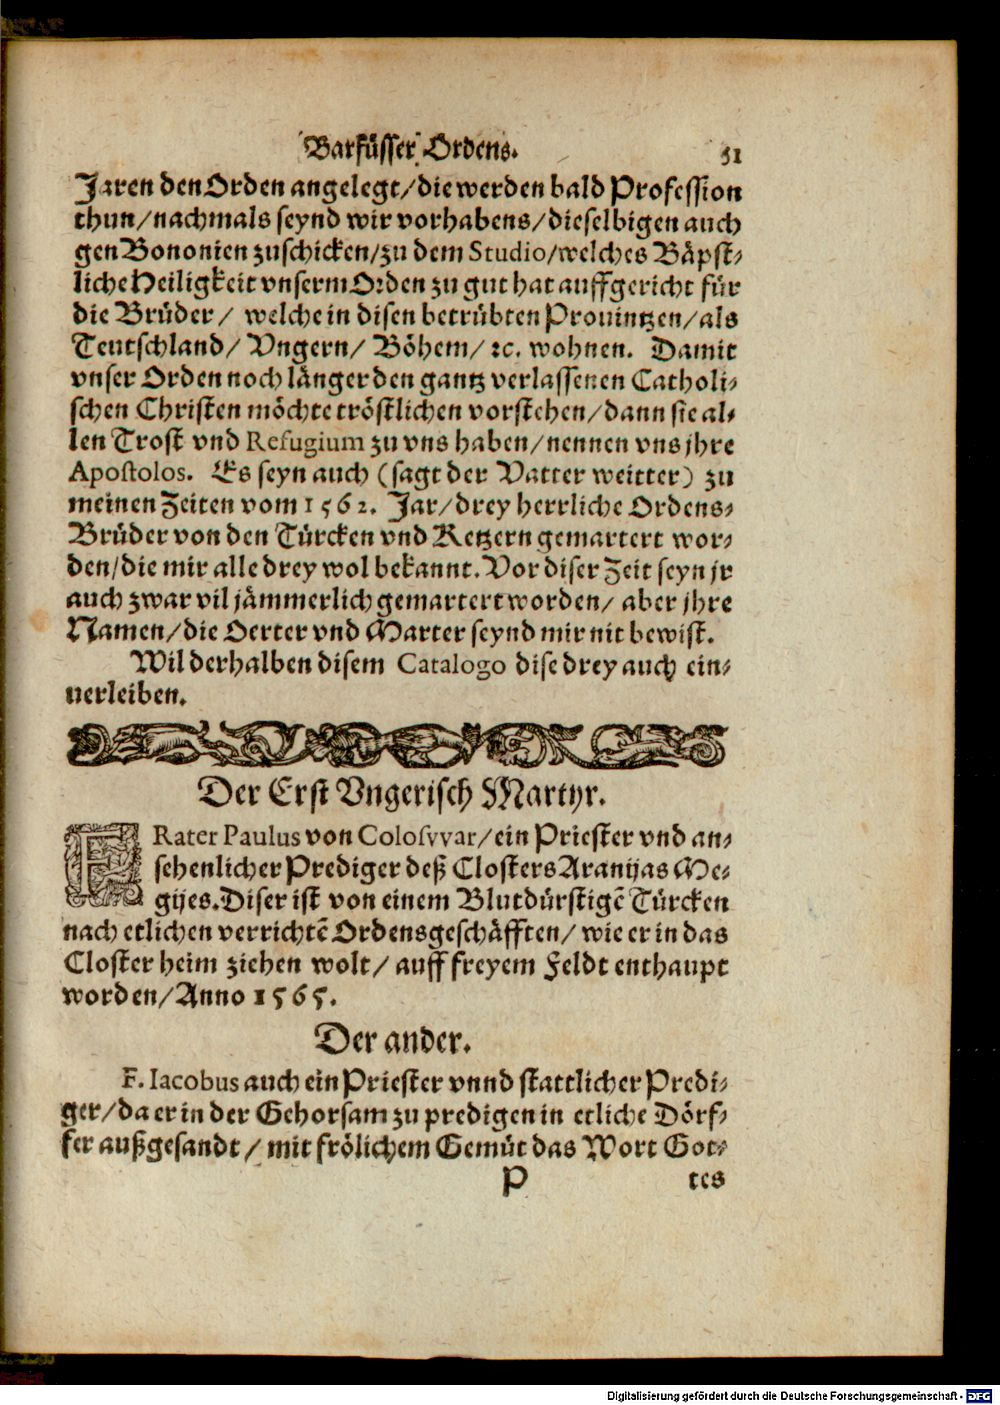 Barfüsser Ordens. 51
Jaren den Orden angelegt/die werden bald Profession
thun/nachmals seynd wir vorhabens/dieselbigen auch
gen Bononien zuschicken/zu dem Studio/welches Bäpst-
liche Heiligkeit vnserm Orden zu gut hat auffgericht für
die Brüder/ welche in disen betrübten Prouintzen/als
Teutschland/ Vngern/ Böhem/ ꝛc. wohnen. Damit
vnser Orden noch länger den gantz verlassenen Catholi-
schen Christen möchte tröstlichen vorstehen/dann sie al-
len Trost vnd Refugium zu vns haben/nennen vns jhre
Apostolos. Es seyn auch (sagt der Vatter weitter) zu
meinen Zeiten vom 1562. Jar/drey herrliche Ordens-
Brüder von den Türcken vnd Ketzern gemartert wor-
den/die mir alle drey wol bekannt. Vor diser Zeit seyn jr
auch zwar vil jämmerlich gemartert worden/ aber jhre
Namen/die Oerter vnd Marter seynd mir nit bewist.
Wil derhalben disem Catalogo dise drey auch ein-
uerleiben.
Der Erst Vngerisch Martyr.
FRater Paulus von Colosvvar/ein Priester vnd an-
sehenlicher Prediger deß Closters Aranyas Me-
gyes. Diser ist von einem Blutdürstigẽ Türcken
nach etlichen verrichtẽ Ordensgeschäfften/ wie er in das
Closter heim ziehen wolt/ auff freyem Feldt enthaupt
worden/Anno 1565.
Der ander.
F. Iacobus auch ein Priester vnnd stattlicher Predi-
ger/da er in der Gehorsam zu predigen in etliche Dörf-
fer außgesandt/ mit frölichem Gemüt das Wort Got-
P tes
Digitalisierung gefördert durch die Deutsche Forschungsgemeinschaft - DFG